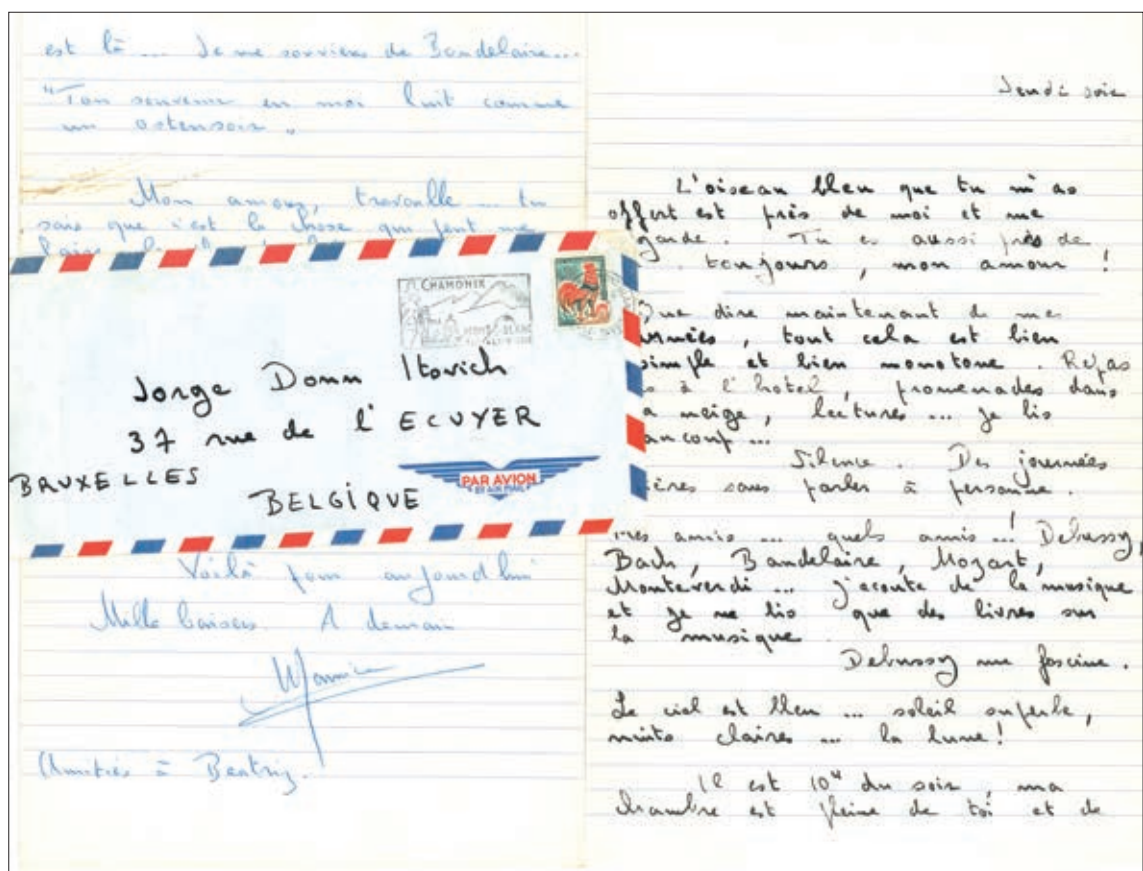 est là ... Je me souviens de Baudelaire...
"Ton souvenir en moi luit comme
un ostensoir"
Mon amour, travaille ... tu
sais que c'est la chose qui peut me
CHAMONIX
MONT-BLANC
Jorge Donn Itovich
37 rue de l'ECUYER
BRUXELLES
BELGIQUE
PAR AVION
BY AIR MAIL
Voilà pour aujourd'hui
Mille baisers. A demain
Maurice
Amitiés à Beatriz.
Jeudi soir
L'oiseau bleu que tu m'as
offert est près de moi et me
garde. Tu es aussi près de
toujours, mon amour !
Que dire maintenant de me
tout cela est bien
simple et bien monotone. Repas
à l'hotel, promenades dans
neige, lectures ... je lis
Silence. Des journées
sans parler à personne.
amis ... quels amis ...! Debussy,
Bach, Baudelaire, Mozart,
Monteverdi ... j'écoute de la musique
et je ne lis que des livres sur
la musique.
Debussy me fascine.
Le ciel est bleu ... soleil superbe,
nuits claires ... la lune!
Il est 10H du soir, ma
chambre est pleine de toi et de